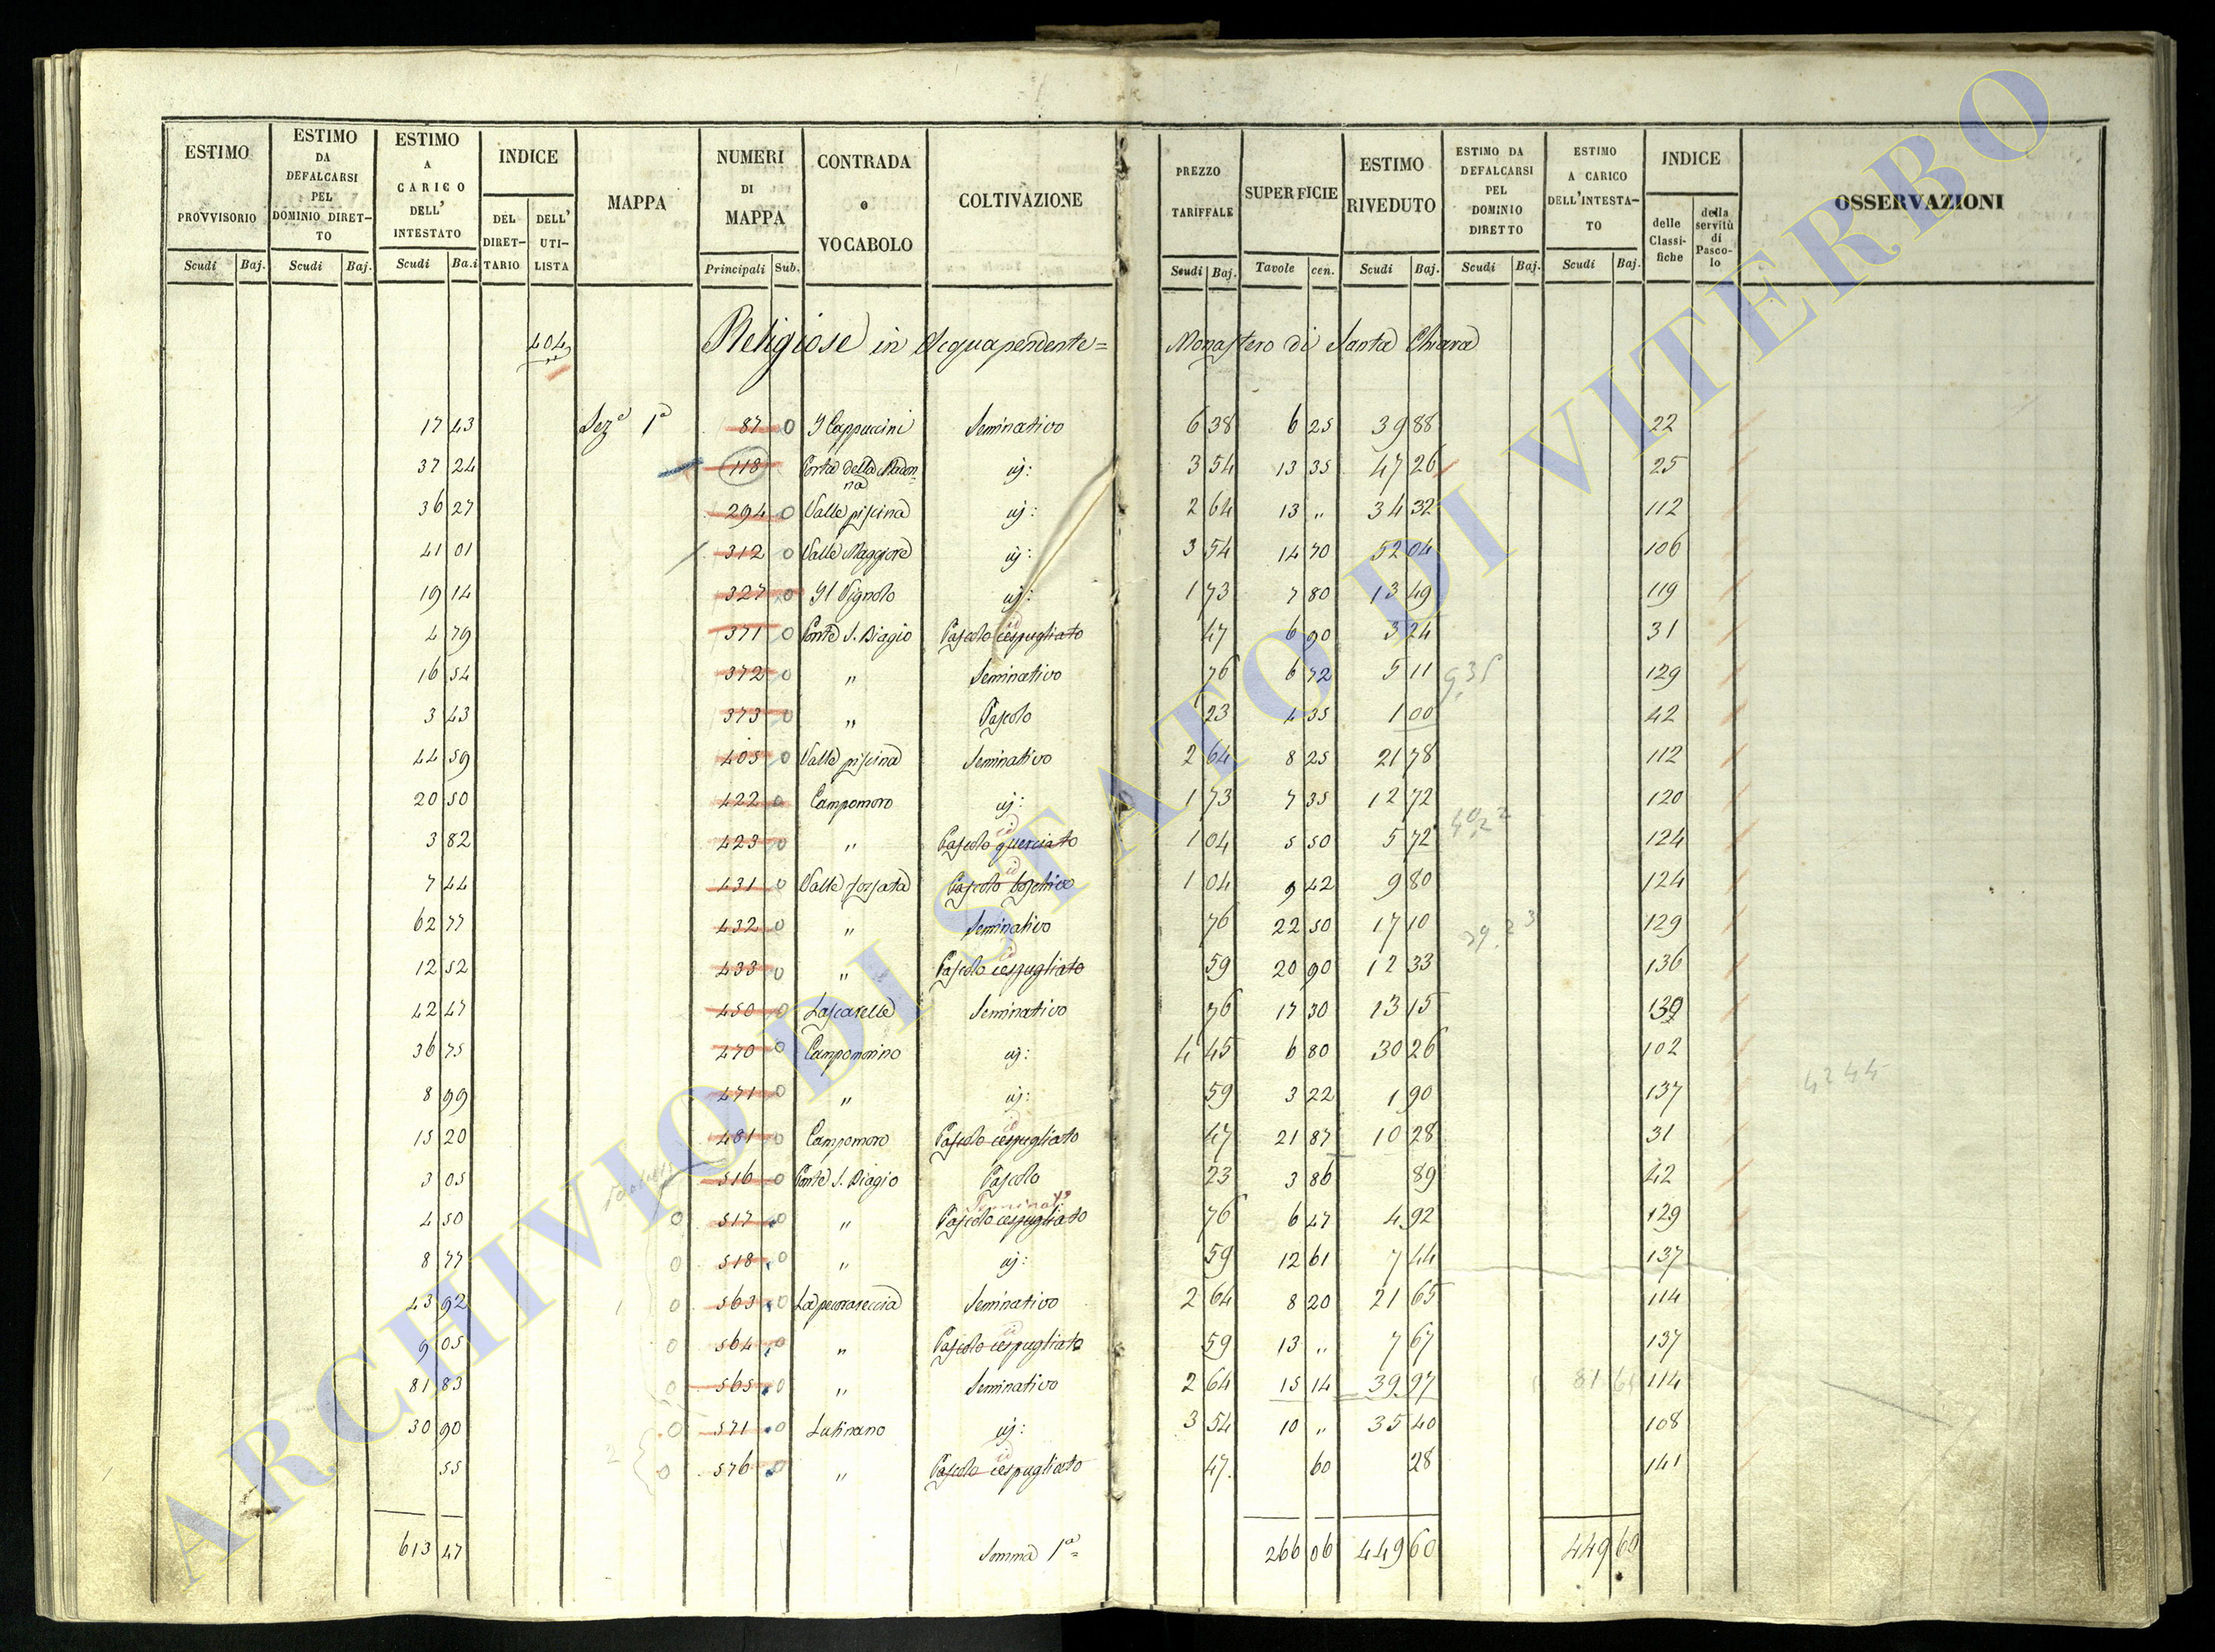 ESTIMO PROVVISORIO | ESTIMO DA DEFALCARSI PEL DOMINIO DIRET-TO | ESTIMO A CARICO DELL' INTESTATO | INDICE DEL DIRET-TARIO | DELL' UTI-LISTA | MAPPA | NUMERI DI MAPPA | CONTRADA o VOCABOLO | COLTIVAZIONE | PREZZO TARIFFALE | SUPERFICIE | ESTIMO RIVEDUTO | ESTIMO DA DEFALCARSI PEL DOMINIO DIRETTO | ESTIMO A CARICO DELL'INTESTA-TO | INDICE delle Classi-fiche | della servitù di Pasco-lo | OSSERVAZIONI
Scudi | Baj. | Scudi | Baj. | Scudi | Ba.i | Principali | Sub. | Scudi | Baj. | Tavole | cen. | Scudi | Baj. | Scudi | Baj. | Scudi | Baj.
404 Religiose in Acquapendente = Monastero di Santa Chiara
17 43 Sez.e 1a 87 0 I Cappuccini Seminativo 6 38 6 25 39 88 22
37 24 118 Porta della Madonna id: 3 54 13 35 47 26 25
36 27 294 0 Valle piscina id: 2 64 13 " 34 32 112
41 01 312 0 Valle Maggiore id: 3 54 14 70 52 04 106
19 14 327 0 Il Vignolo id: 1 73 7 80 13 49 119
4 79 371 0 Ponte S. Biagio Pascolo cespugliato id 47 6 90 3 24 31
16 54 372 0 " Seminativo 76 6 72 5 11 9,35 129
3 43 373 0 " Pascolo 23 4 35 1 00 42
44 59 405 0 Valle piscina Seminativo 2 64 8 25 21 78 112
20 50 422 0 Campomoro id: 1 73 7 35 12 72 120
3 82 423 0 " Pascolo querciato id 1 04 5 50 5 72 124
7 44 431 0 Valle forzata Pascolo boschivo id 1 04 9 42 9 80 124
62 77 432 0 " Seminativo 76 22 50 17 10 129
12 52 433 0 " Pascolo cespugliato id 59 20 90 12 33 136
42 47 450 0 Lascarelle Seminativo 76 17 30 13 15 139
36 75 470 0 Campomorino id: 4 45 6 80 30 26 102
8 99 471 0 " id: 59 3 22 1 90 137
15 20 481 0 Campomoro Pascolo cespugliato id 47 21 87 10 28 31
3 05 516 0 Ponte S. Biagio Pascolo 23 3 86 89 42
4 50 0 517 0 " Pascolo cespugliato 76 6 47 4 92 129
8 77 0 518 0 " id: 59 12 61 7 44 137
43 92 0 563 0 La pecorareccia Seminativo 2 64 8 20 21 65 114
9 05 0 564 0 " Pascolo cespugliato id 59 13 " 7 67 137
81 83 0 565 0 " Seminativo 2 64 15 14 39 97 114
30 90 0 571 0 Lutinano id: 3 54 10 " 35 40 108
55 0 576 0 " Pascolo cespugliato id 47 60 28 141
613 47 Somma 1a = 266 06 449 60 449 60
ARCHIVIO DI STATO DI VITERBO